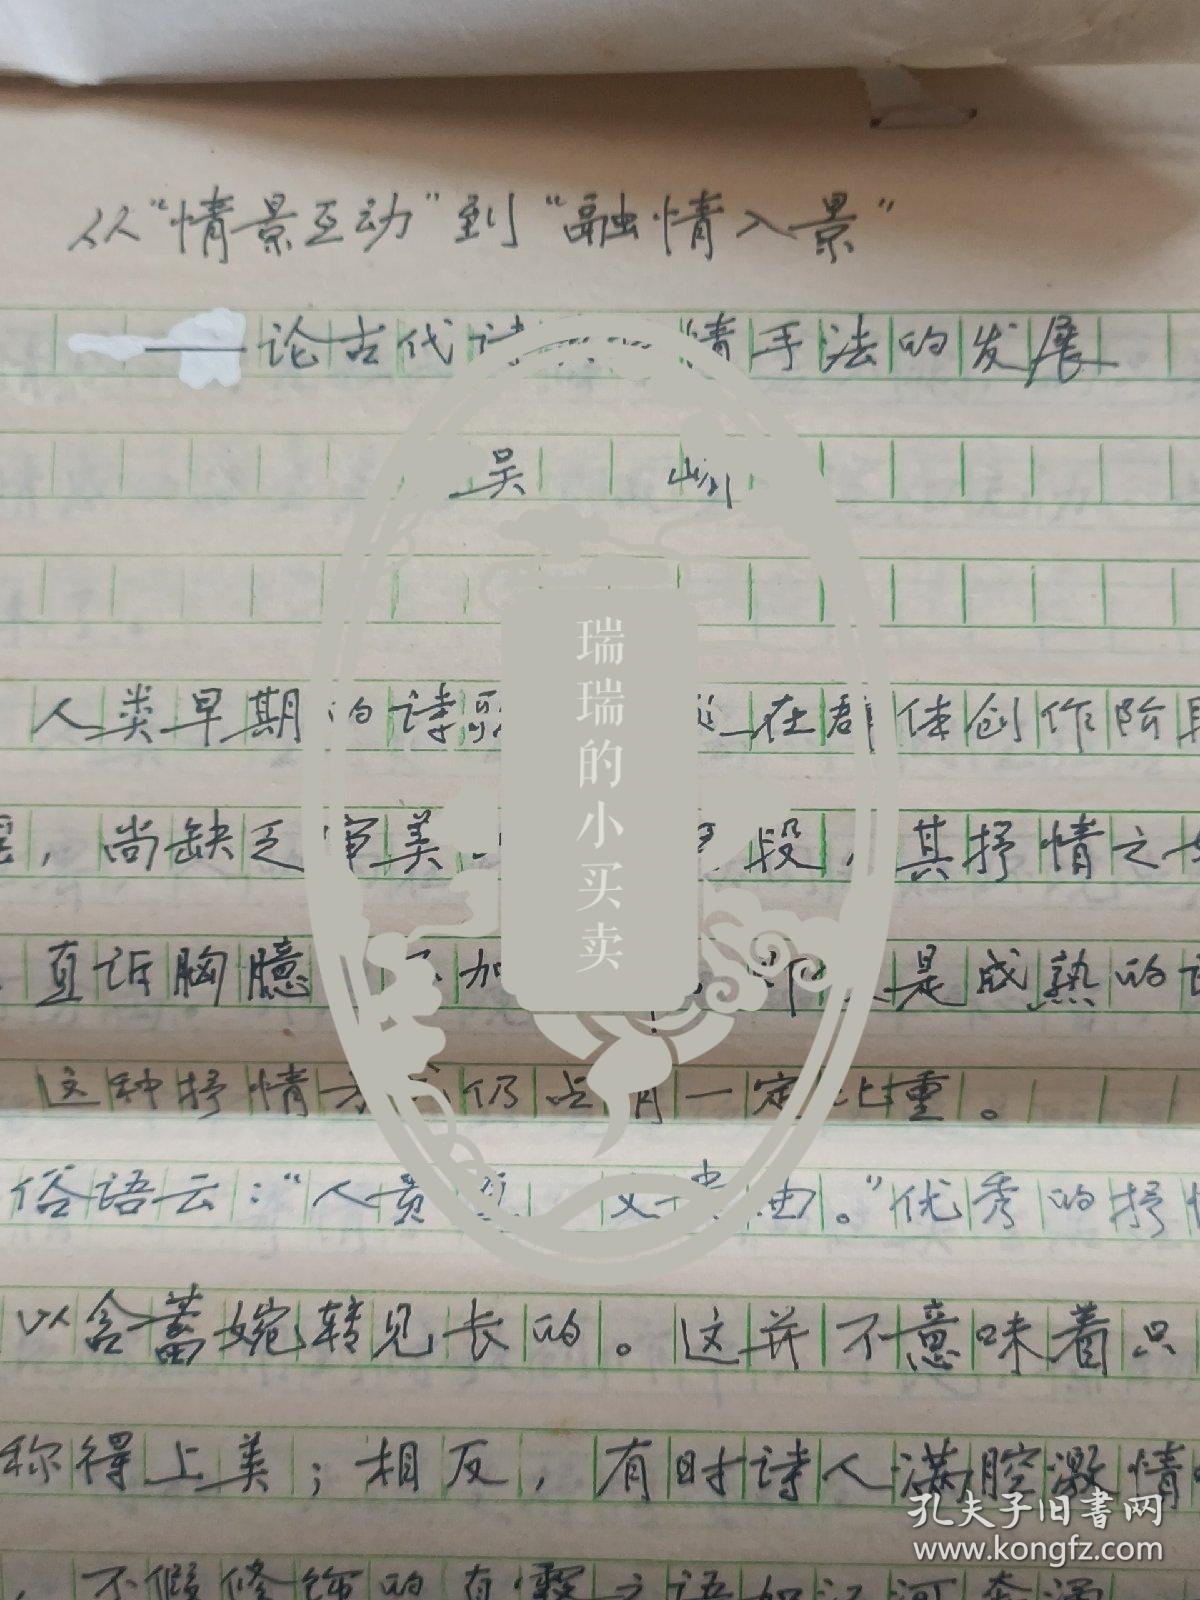 从“情景互动”到“融情入景”
——论古代诗 情手法的发展
吴
人类早期的诗歌 在群体创作阶段
，尚缺乏审美 段，其抒情之
直诉胸臆 加 是成熟的
这种抒情方式仍占有一定比重。
俗语云：“人贵直，文贵曲。”优秀的抒
以含蓄婉转见长的。这并不意味着只
称得上美；相反，有时诗人满腔激情
，不假修饰的 之语如江河奔涌
瑞瑞的小买卖
孔夫子旧书网
www.kongfz.com